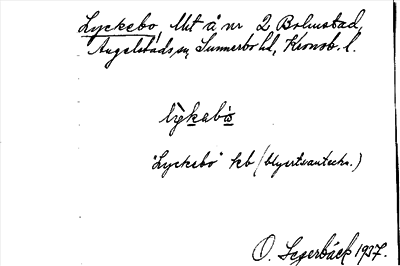 Lyckebo, lht å nr 2 Bolmstad,
Angelstads sn, Sunnerbo hd, Kronob. l.
lỳkabò
"Lyckebo" kb (blyertsanteckn.)
O. Segerbäck 1937.